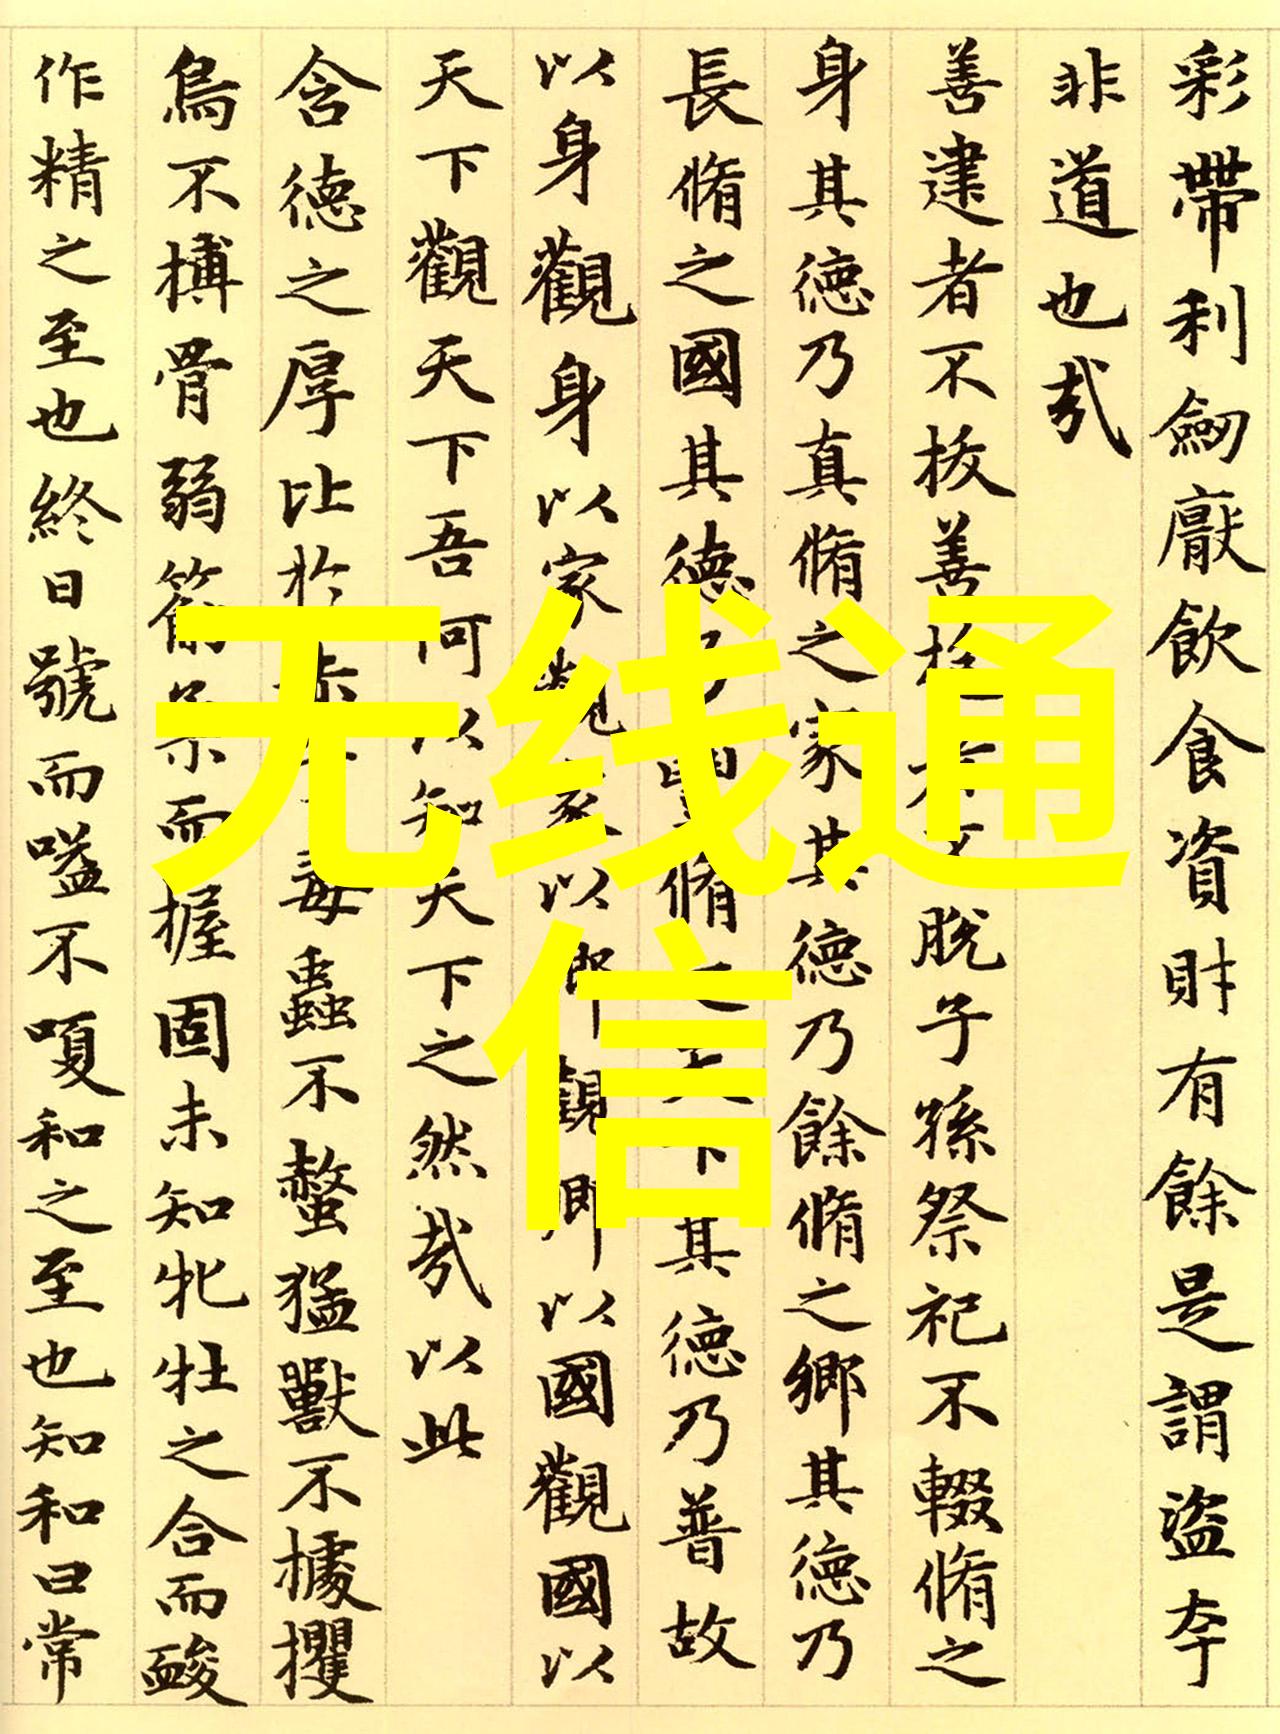 彩帶利劒厭飲食資財有餘是謂盜夸
非道也哉
善建者不拔善抱者不脫子孫祭祀不輟脩之
身其德乃真脩之家其德乃餘脩之鄉其德乃
長脩之國其德乃豐脩之天下其德乃普故
以身觀身以家觀家以鄉觀鄉以國觀國以
天下觀天下吾何以知天下之然哉以此
含德之厚比於赤子毒蟲不螫猛獸不據攫
鳥不搏骨弱筋柔而握固未知牝牡之合而酸
作精之至也終日號而嗌不嗄和之至也知和曰常
无线通
信